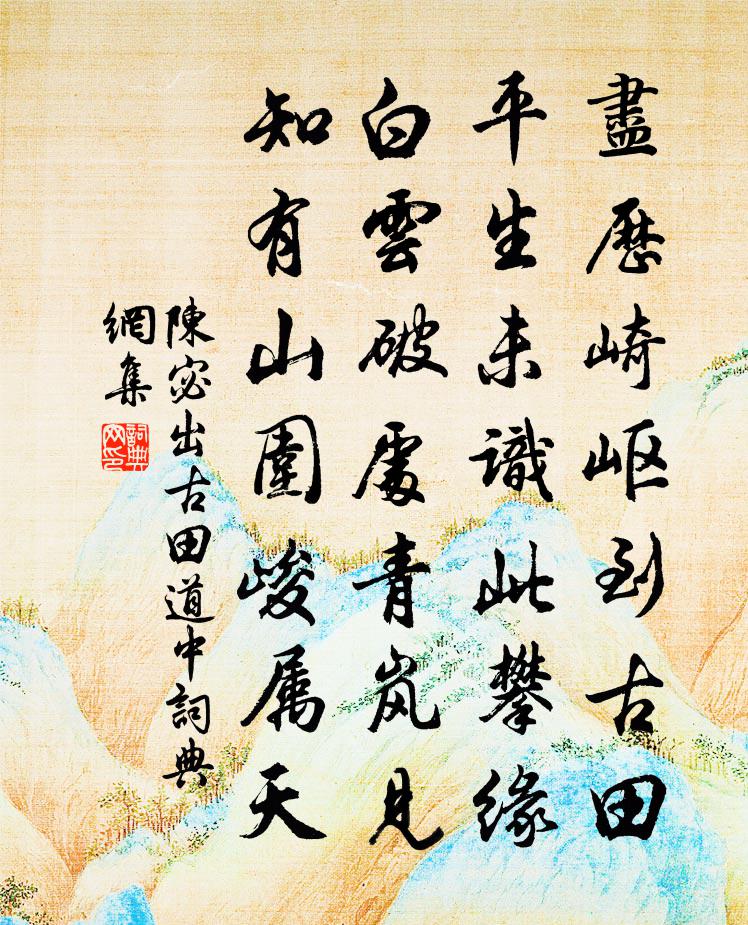 盡歷崎嶇到古田
平生未識此攀緣
白雲破處青岚見
知有山圍峻属天
陳宓出古田道中詞典
網集
詞典
网印